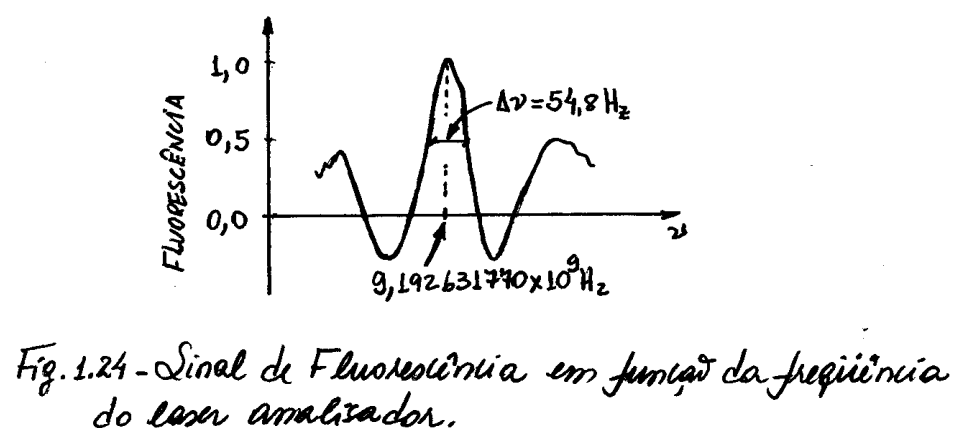 1,0
Δν=54,8 Hz
0,5
FLUORESCÊNCIA
0,0
ν
9,192631770x10⁹Hz
Fig. 1.24 - Sinal de Fluorescência em função da freqüência
do laser analisador.